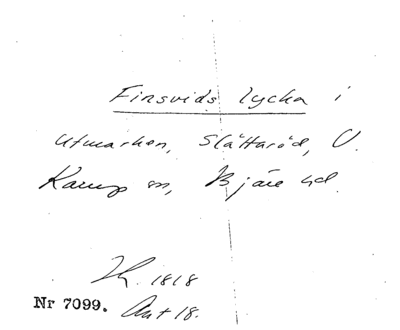 Finsvids lycka i
utmarken, Slättaröd, V.
Karup sn, Bjäre hd.
1818
Nr 7099. Akt 18.